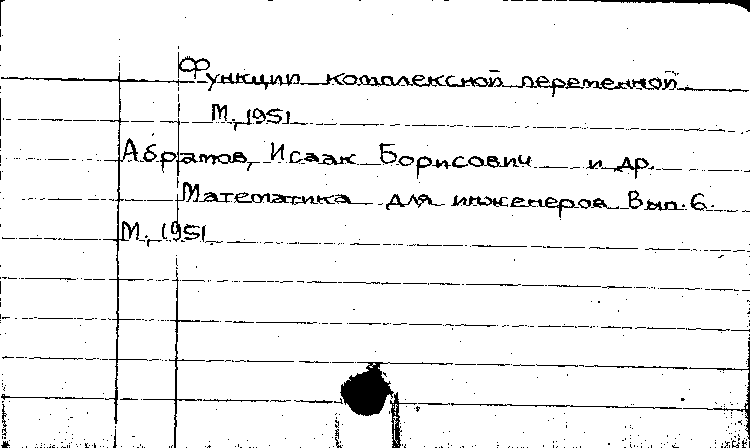 Функции комплексной переменной.
М., 1951
Абрамов, Исаак Борисович и др.
Математика для инженеров Вып. 6.
М., 1951